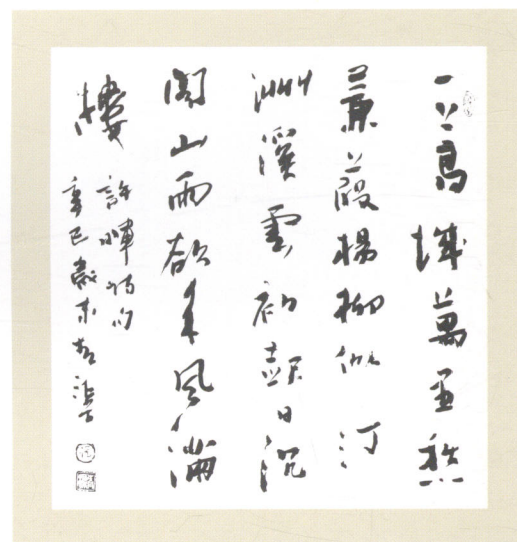 一上高城萬里愁
蒹葭楊柳似汀
洲溪雲初起日沉
閣山雨欲來風滿
樓
許渾詩句
辛巳歲末